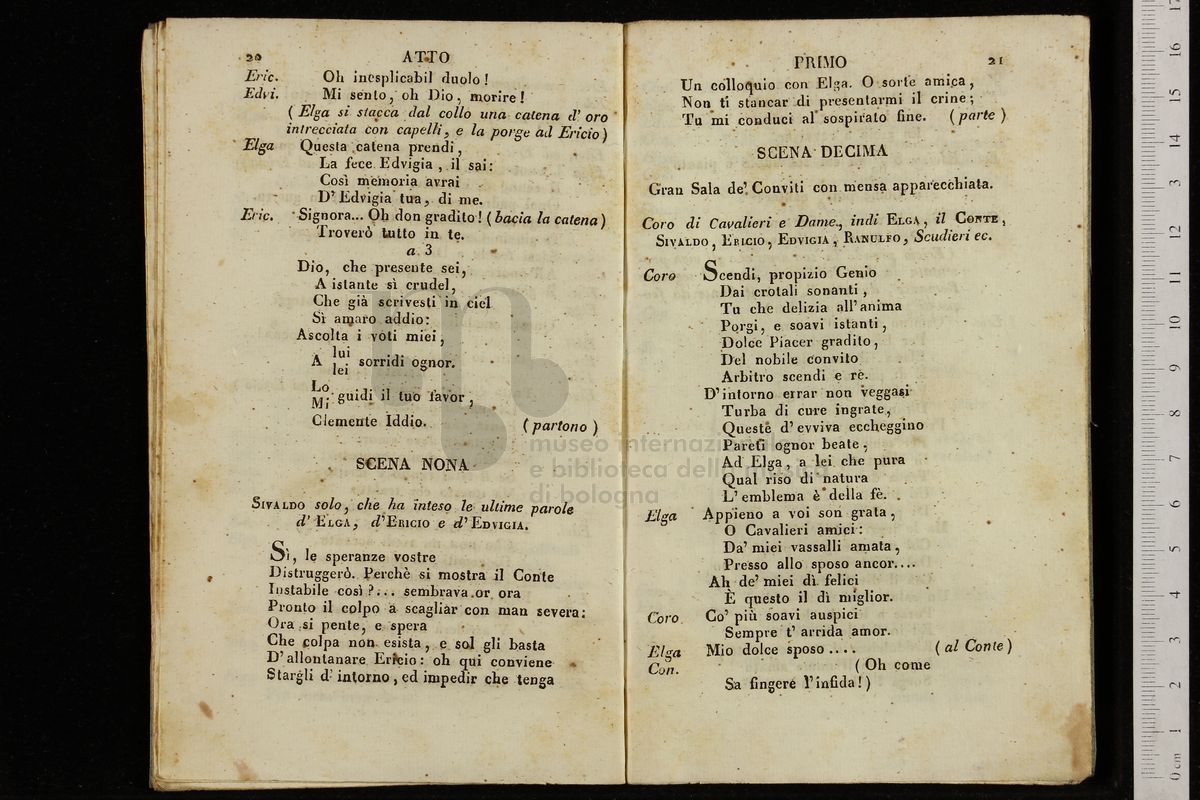 20 ATTO
Eric. Oh inesplicabil duolo!
Edvi. Mi sento, oh Dio, morire!
(Elga si stacca dal collo una catena d'oro
intrecciata con capelli, e la porge ad Ericio)
Elga Questa catena prendi,
La fece Edvigia, il sai:
Così memoria avrai
D'Edvigia tua, di me.
Eric. Signora... Oh don gradito! (bacia la catena)
Troverò tutto in te.
a 3
Dio, che presente sei,
A istante sì crudel,
Che già scrivesti in ciel
Sì amaro addio:
Ascolta i voti miei,
A lui
lei sorridi ognor.
Lo
Mi guidi il tuo favor,
Clemente Iddio. (partono)
SCENA NONA
SIVALDO solo, che ha inteso le ultime parole
d'ELGA, d'ERICIO e d'EDVIGIA.
Sì, le speranze vostre
Distruggerò. Perchè si mostra il Conte
Instabile così?... sembrava or ora
Pronto il colpo a scagliar con man severa:
Ora si pente, e spera
Che colpa non esista, e sol gli basta
D'allontanare Ericio: oh qui conviene
Stargli d'intorno, ed impedir che tenga
PRIMO 21
Un colloquio con Elga. O sorte amica,
Non ti stancar di presentarmi il crine;
Tu mi conduci al sospirato fine. (parte)
SCENA DECIMA
Gran Sala de' Conviti con mensa apparecchiata.
Coro di Cavalieri e Dame, indi ELGA, il CONTE,
SIVALDO, ERICIO, EDVIGIA, RANULFO, Scudieri ec.
Coro Scendi, propizio Genio
Dai crotali sonanti,
Tu che delizia all'anima
Porgi, e soavi istanti,
Dolce Piacer gradito,
Del nobile convito
Arbitro scendi e re.
D'intorno errar non veggasi
Turba di cure ingrate,
Queste d'evviva eccheggino
Pareti ognor beate,
Ad Elga, a lei che pura
Qual riso di natura
L'emblema è della fè.
Elga Appieno a voi son grata,
O Cavalieri amici:
Da' miei vassalli amata,
Presso allo sposo ancor....
Ah de' miei dì felici
È questo il dì miglior.
Coro Co' più soavi auspici
Sempre t'arrida amor.
Elga Mio dolce sposo.... (al Conte)
Con. (Oh come
Sa fingere l'infida!)
museo internazionale
e biblioteca della musica
di bologna
0 cm 1 2 3 4 5 6 7 8 9 10 11 12 13 14 15 16 17